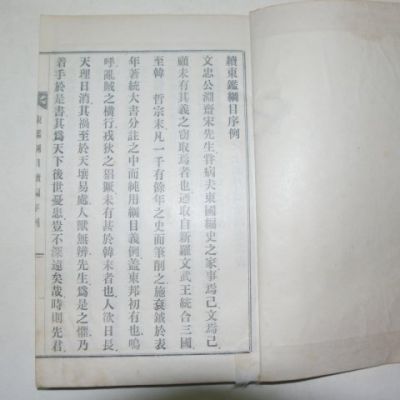 續東鑑綱目序例
文忠公淵齋宋先生嘗病夫東國編史之家事焉已文焉已
顧未有其義之竊取焉者也迺取自新羅文武王統合三國
至韓 哲宗末凡一千有餘年之史而筆削之施袞鉞於表
年著統大書分註之中而純用綱目義例蓋東邦初有也嗚
呼亂賊之橫行戎狄之猖獗未有甚於韓末者也人欲日長
天理日消其禍至於天壤易處人獸無辨先生爲是之懼乃
着手於是書其爲天下後世憂患豈不深遠矣哉時則先君